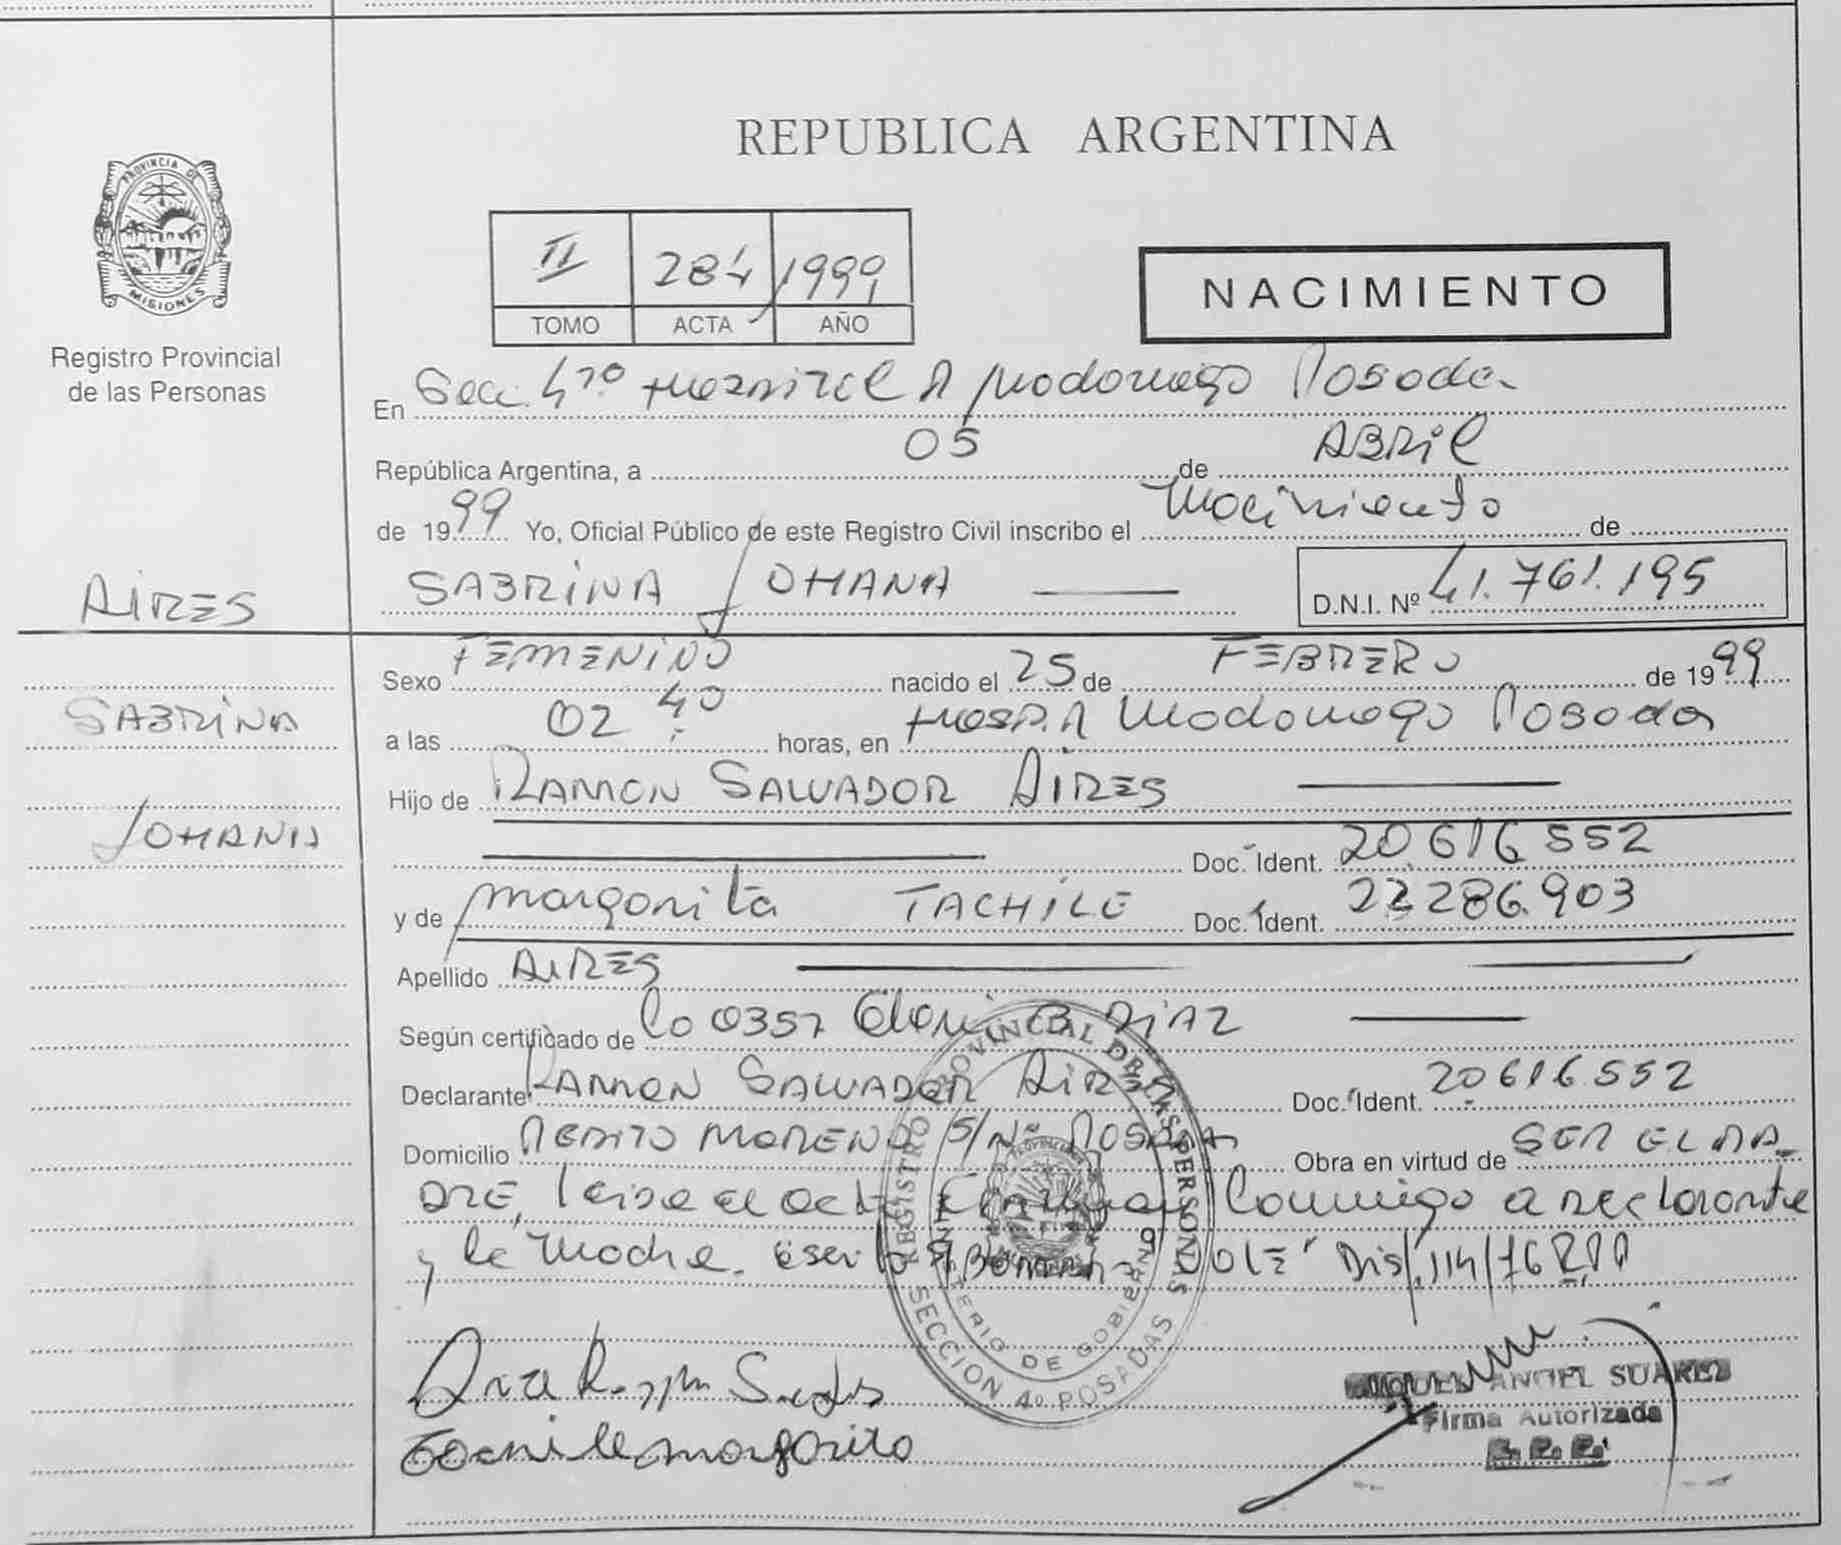 PROVINCIA DE
MISIONES
Registro Provincial
de las Personas
AIRES
SABRINA
JOHANA
REPUBLICA ARGENTINA
II 284 1999
TOMO ACTA AÑO
NACIMIENTO
En Secc. 4ta Hospital R Madariaga Posadas
República Argentina, a 05 de ABRIL
de 1999 Yo, Oficial Público de este Registro Civil inscribo el Nacimiento de
SABRINA JOHANA D.N.I. Nº 41.761.195
Sexo FEMENINO nacido el 25 de FEBRERO de 1999
a las 02:40 horas, en Hosp. R Madariaga Posadas
Hijo de RAMON SALVADOR AIRES
Doc. Ident. 20.616.552
y de Margarita TACHILE Doc. Ident. 22.286.903
Apellido AIRES
Según certificado de Co 0357 DIAZ
Declarante RAMON SALVADOR AIRES Doc. Ident. 20.616.552
Domicilio MORENO S/Nº POSADAS Obra en virtud de SER EL PA-
DRE, el acta Conmigo el declarante
y la Madre. Dis. 114/76 RPP
REGISTRO PROVINCIAL DE LAS PERSONAS
MINISTERIO DE GOBIERNO
SECCION 4º POSADAS
Tachile Margarita
MIGUEL ANGEL SUAREZ
Firma Autorizada